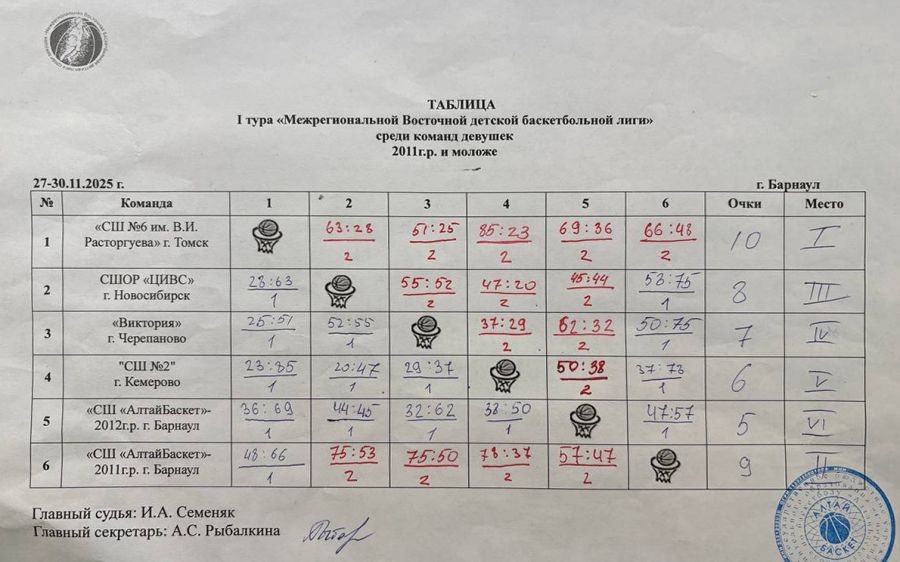 ТАБЛИЦА
I тура «Межрегиональной Восточной детской баскетбольной лиги»
среди команд девушек
2011г.р. и моложе
27-30.11.2025 г. г. Барнаул
№ Команда 1 2 3 4 5 6 Очки Место
1 «СШ №6 им. В.И. Расторгуева» г. Томск 63:28 2 51:25 2 85:23 2 69:36 2 66:48 2 10 I
2 СШОР «ЦИВС» г. Новосибирск 28:63 1 55:52 2 47:20 2 45:44 2 53:75 1 8 III
3 «Виктория» г. Черепаново 25:51 1 52:55 1 37:29 2 62:32 2 50:75 1 7 IV
4 "СШ №2" г. Кемерово 23:85 1 20:47 1 29:37 1 50:38 2 37:78 1 6 V
5 «СШ «АлтайБаскет»- 2012г.р. г. Барнаул 36:69 1 44:45 1 32:62 1 38:50 1 47:57 1 5 VI
6 «СШ «АлтайБаскет»- 2011г.р. г. Барнаул 48:66 1 75:53 2 75:50 2 78:37 2 57:47 2 9 II
Главный судья: И.А. Семеняк
Главный секретарь: А.С. Рыбалкина
АЛТАЙ
БАСКЕТ